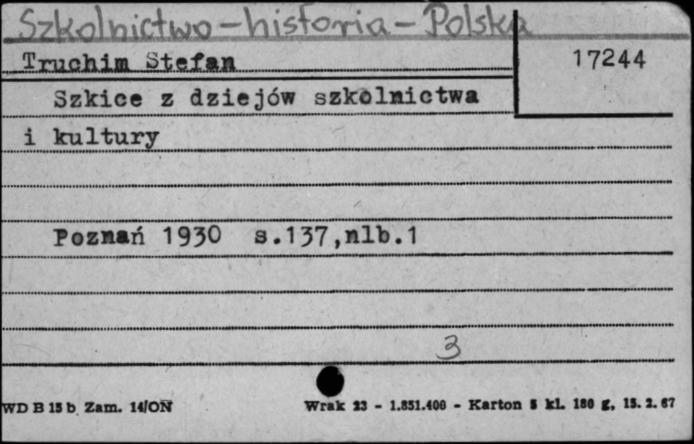 Szkolnictwo-historia-Polska
Truchim Stefan
17244
Szkice z dziejów szkolnictwa
i kultury
Poznań 1930 s.137,nlb.1
3
WD B 15 b Zam. 14/ON
Wrak 23 - 1.851.400 - Karton 5 kl. 180 g, 15. 2. 67